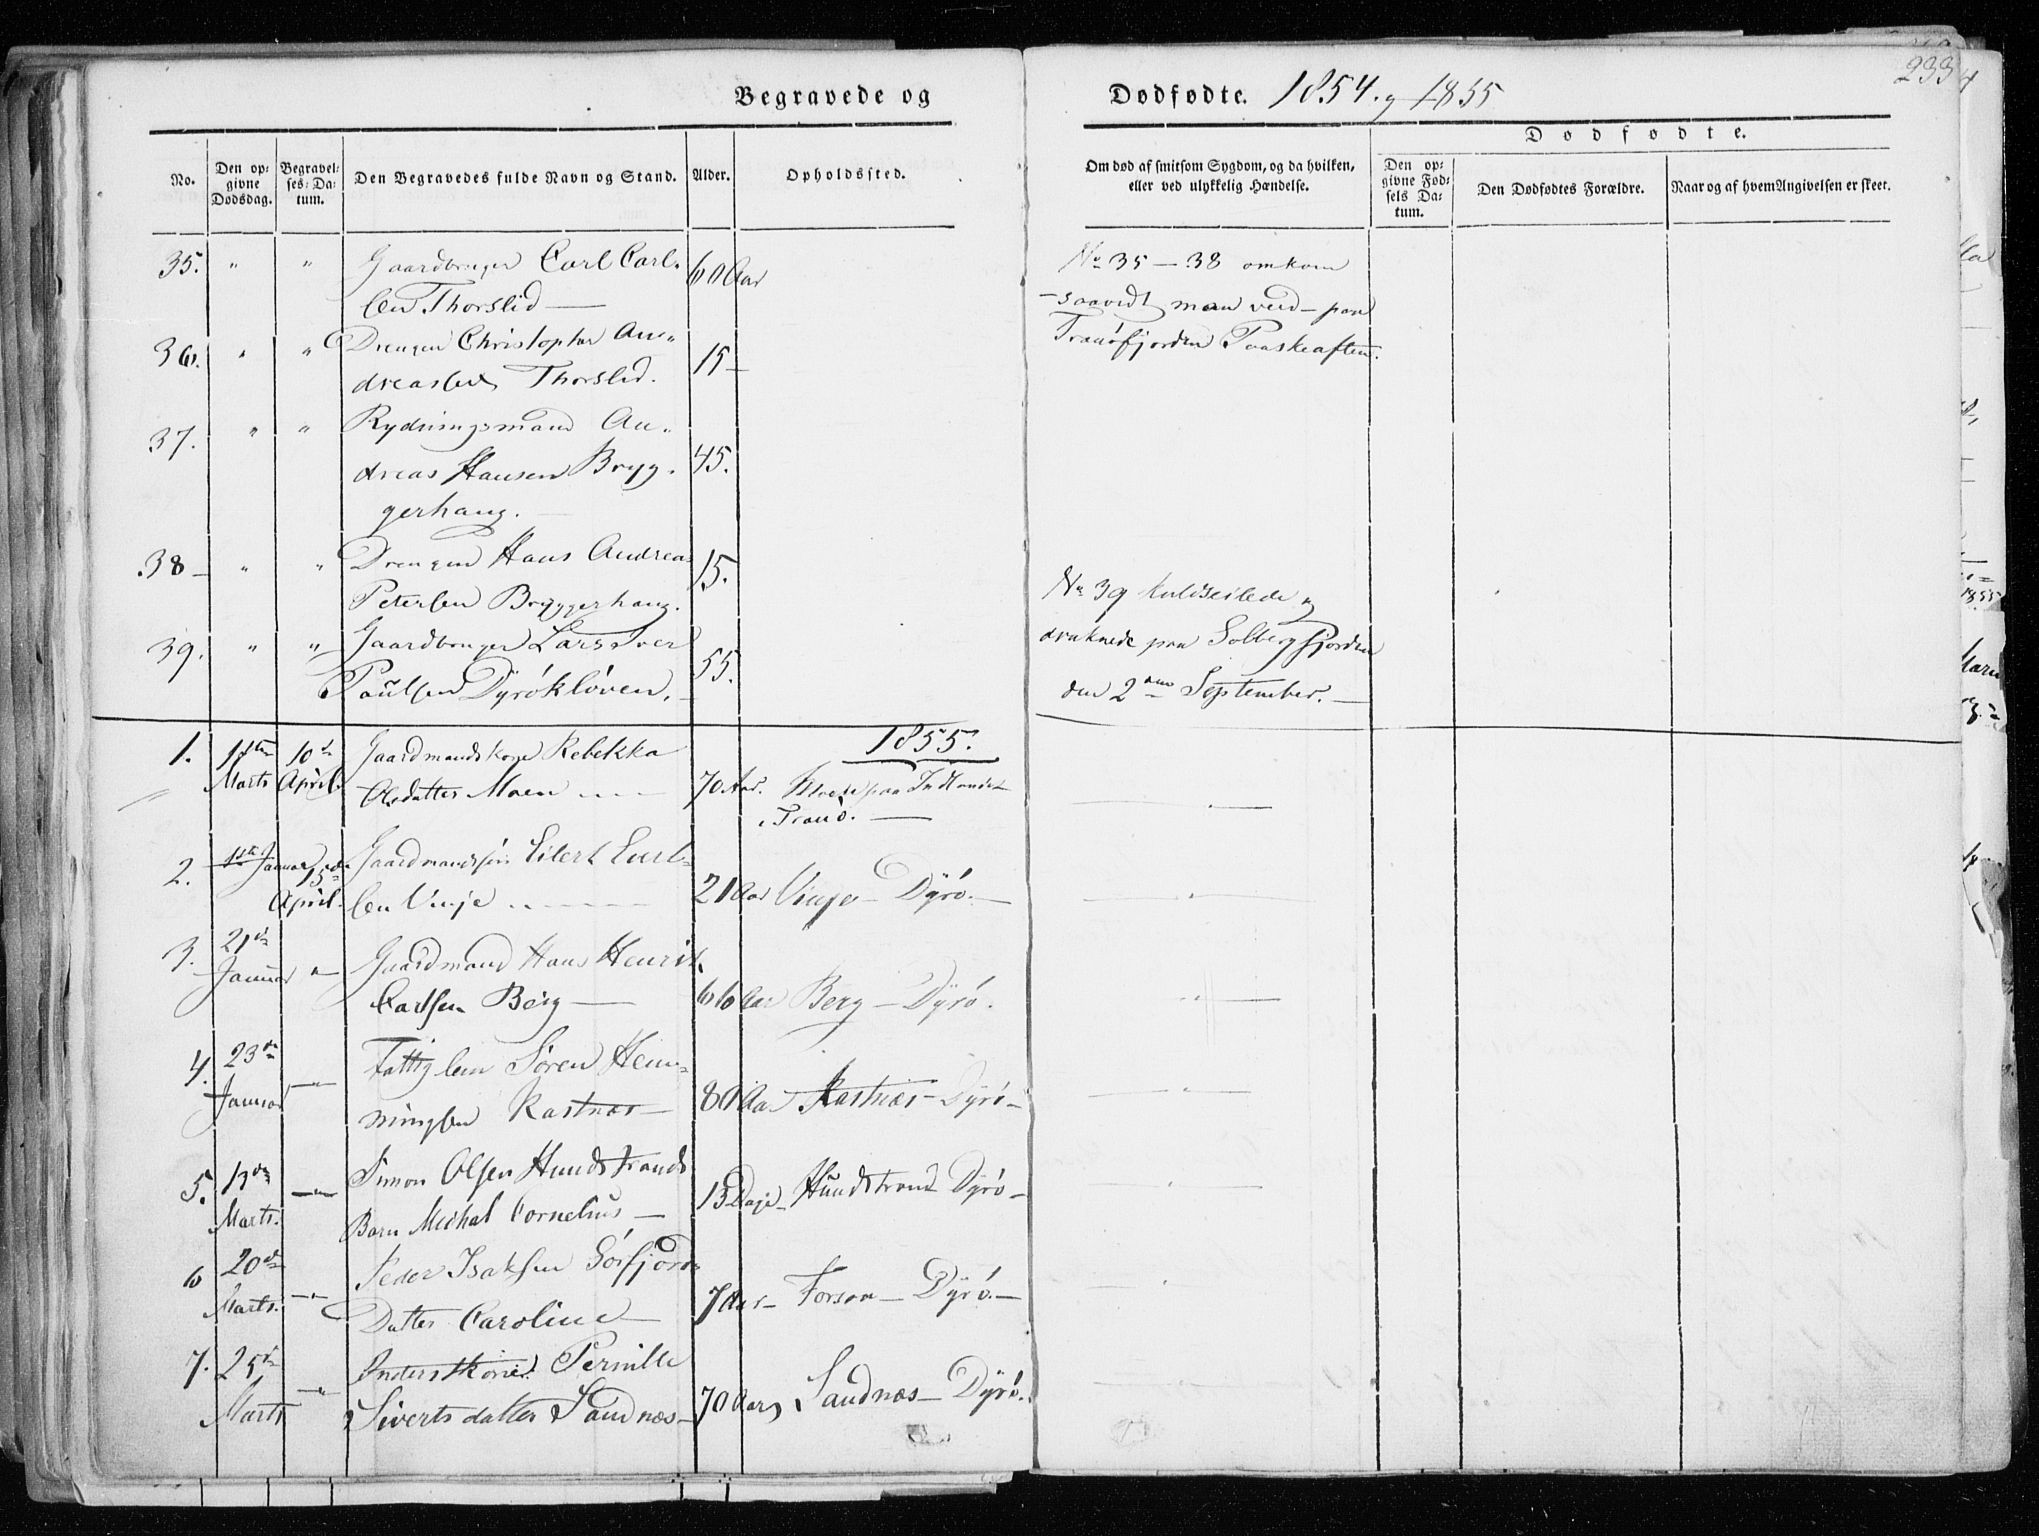 Begravede og
Dødfødte. 1854. og 1855
233
Dødfødte.
No.
Den opgivne Dødsdag.
Begravelses-Datum.
Den Begravedes fulde Navn og Stand.
Alder.
Opholdssted.
Om død af smitsom Sygdom, og da hvilken, eller ved ulykkelig Hændelse.
Den opgivne Fødsels Datum.
Den Dødfødtes Forældre.
Naar og af hvem Angivelsen er skeet.
35. " " Gaardbruger Carl Carl- 60 Aar
sen Thorslid —
No 35 — 38 omkom
— saavidt man veed — paa
Tranøfjorden Paaskeaften.
36. " " Drengen Christopher An-
dreassen Thorslid. 15 —
37. " " Rydningsmand An-
dreas Hansen Bryg- 45.
gerhaug. —
38 — " " Drengen Hans Andreas 15.
Petersen Bryggerhaug.
39. " " Gaardbruger Lars Iver
Paulsen Dyrøkløven. — 55.
No 39 kuldseilede og
druknede paa Solbergfjorden
den 2den September. —
1855.
1. Marts 10de April Gaardmandskone Rebekka
Olsdatter Moen — 70 Aar. Moen paa Indlandet
i Tranø. —
2. Januar 15de April. Gaardmandssøn Eilert Carl-
sen Vinje 21 Aar Vinje — Dyrø. —
3. 21de Januar " Gaardmand Hans Henrik
Carlsen Berg — 66 Aar Berg — Dyrø.
4. 23de Januar — " — Fattiglem Søren Hem-
mingsen Kastnæs — 80 Aar Kastnæs — Dyrø —
5. 13de Marts. — " — Simon Olsen Hundstrands
Barn Michal Cornelius — 13 Dage — Hundstrand Dyrø —
6 20de Marts. — " — Peder Isaksen Sørfjord
Datter Caroline 7 Aar — Forsaa — Dyrø. —
7. 25de Marts — " — Pernille
Sivertsdatter Sandnæs — 70 Aar Sandnæs — Dyrø.